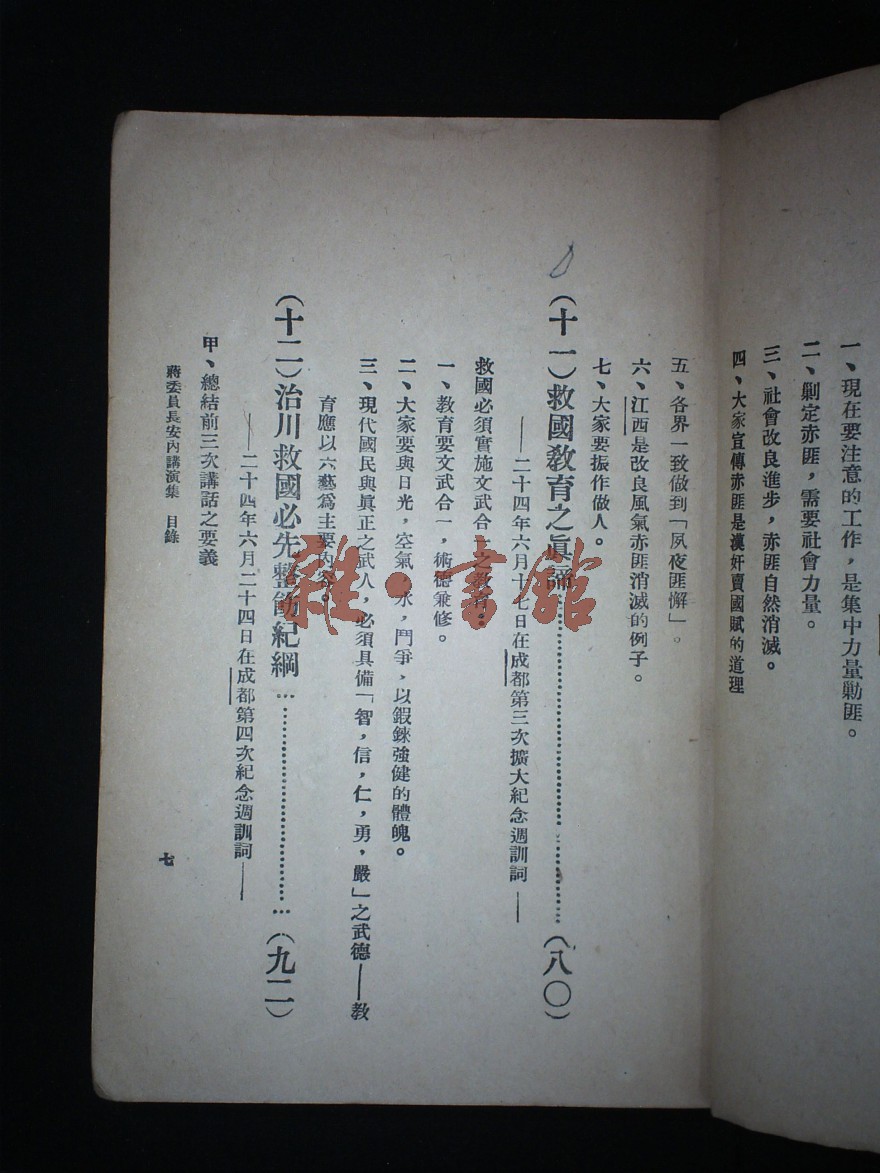 一、現在要注意的工作，是集中力量勦匪。
二、勦定赤匪，需要社會力量。
三、社會改良進步，赤匪自然消滅。
四、大家宣傳赤匪是漢奸賣國賊的道理
五、各界一致做到「夙夜匪懈」。
六、江西是改良風氣赤匪消滅的例子。
七、大家要振作做人。
（十一）救國教育之眞諦……………………（八〇）
——二十四年六月十七日在成都第三次擴大紀念週訓詞——
救國必須實施文武合一之教育。
一、教育要文武合一，術德兼修。
二、大家要與日光，空氣，水，鬥爭，以鍛鍊強健的體魄。
三、現代國民與眞正之武人，必須具備「智，信，仁，勇，嚴」之武德——教
育應以六藝爲主要內容。
（十二）治川救國必先整飭紀綱……………………（九二）
——二十四年六月二十四日在成都第四次紀念週訓詞——
甲、總結前三次講話之要義
蔣委員長安內講演集　目錄
七
雜·書館